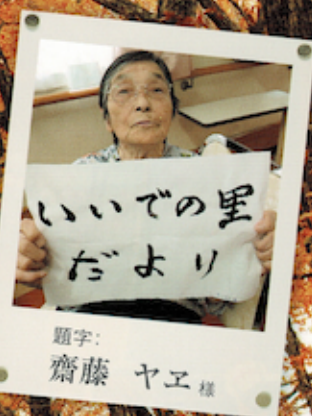 いいでの里
だより
題字:
齋藤 ヤヱ 様